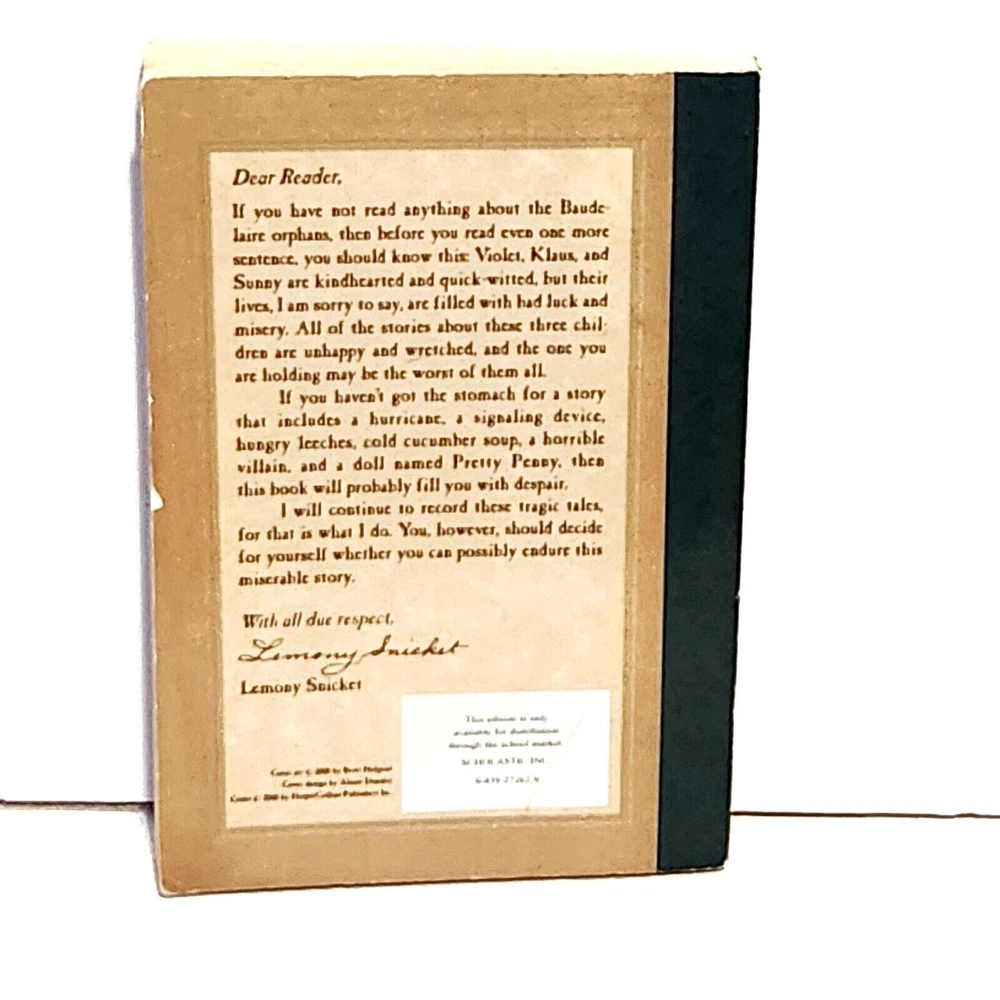 Dear Reader,
If you have not read anything about the Baude-
laire orphans, then before you read even one more
sentence, you should know this: Violet, Klaus, and
Sunny are kindhearted and quick-witted, but their
lives, I am sorry to say, are filled with bad luck and
misery. All of the stories about these three chil-
dren are unhappy and wretched, and the one you
are holding may be the worst of them all.
If you haven't got the stomach for a story
that includes a hurricane, a signaling device,
hungry leeches, cold cucumber soup, a horrible
villain, and a doll named Pretty Penny, then
this book will probably fill you with despair.
I will continue to record these tragic tales,
for that is what I do. You, however, should decide
for yourself whether you can possibly endure this
miserable story.
With all due respect,
Lemony Snicket
Lemony Snicket
This edition is only
available for distribution
through the school market.
SCHOLASTIC INC.
Cover art © 2000 by Brett Helquist
Cover design by Alison Donalty
Cover © 2000 by HarperCollins Publishers Inc.